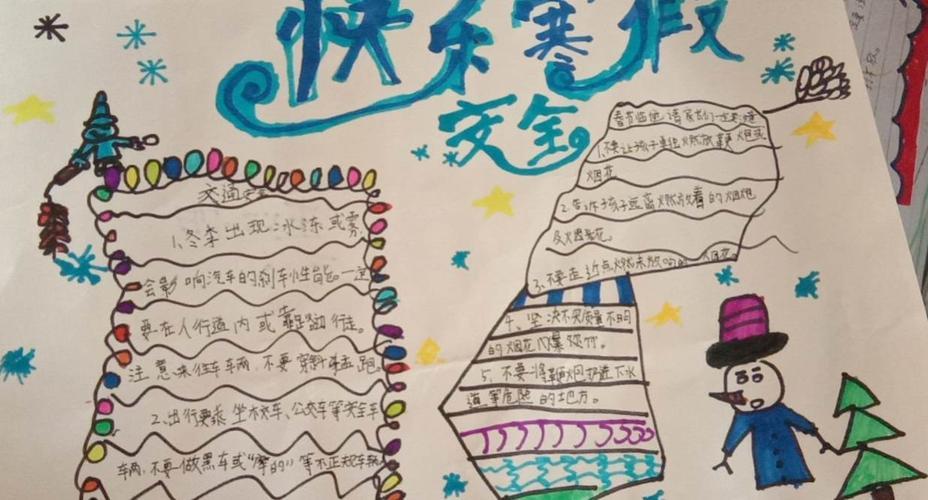 快乐寒假
安全
交通安全
1.冬季出现冰冻或雾,
会影响汽车的刹车性能一定
要在人行道内或靠路边行走。
注意来往车辆,不要穿斜猛跑。
2.出行要乘坐校车、公交车等安全车
车辆,不要做黑车或“摩的”等不正规车辆
春节临近,请家长们一定
1.不要让孩子单独燃放鞭炮或
烟花。
2.告诉孩子远离燃放着的烟炮
及烟花。
3.不要走近点燃未放响的烟花。
4、坚决不买质量不明
的烟花爆竹。
5、不要将鞭炮扔进下水
道等危险的地方。